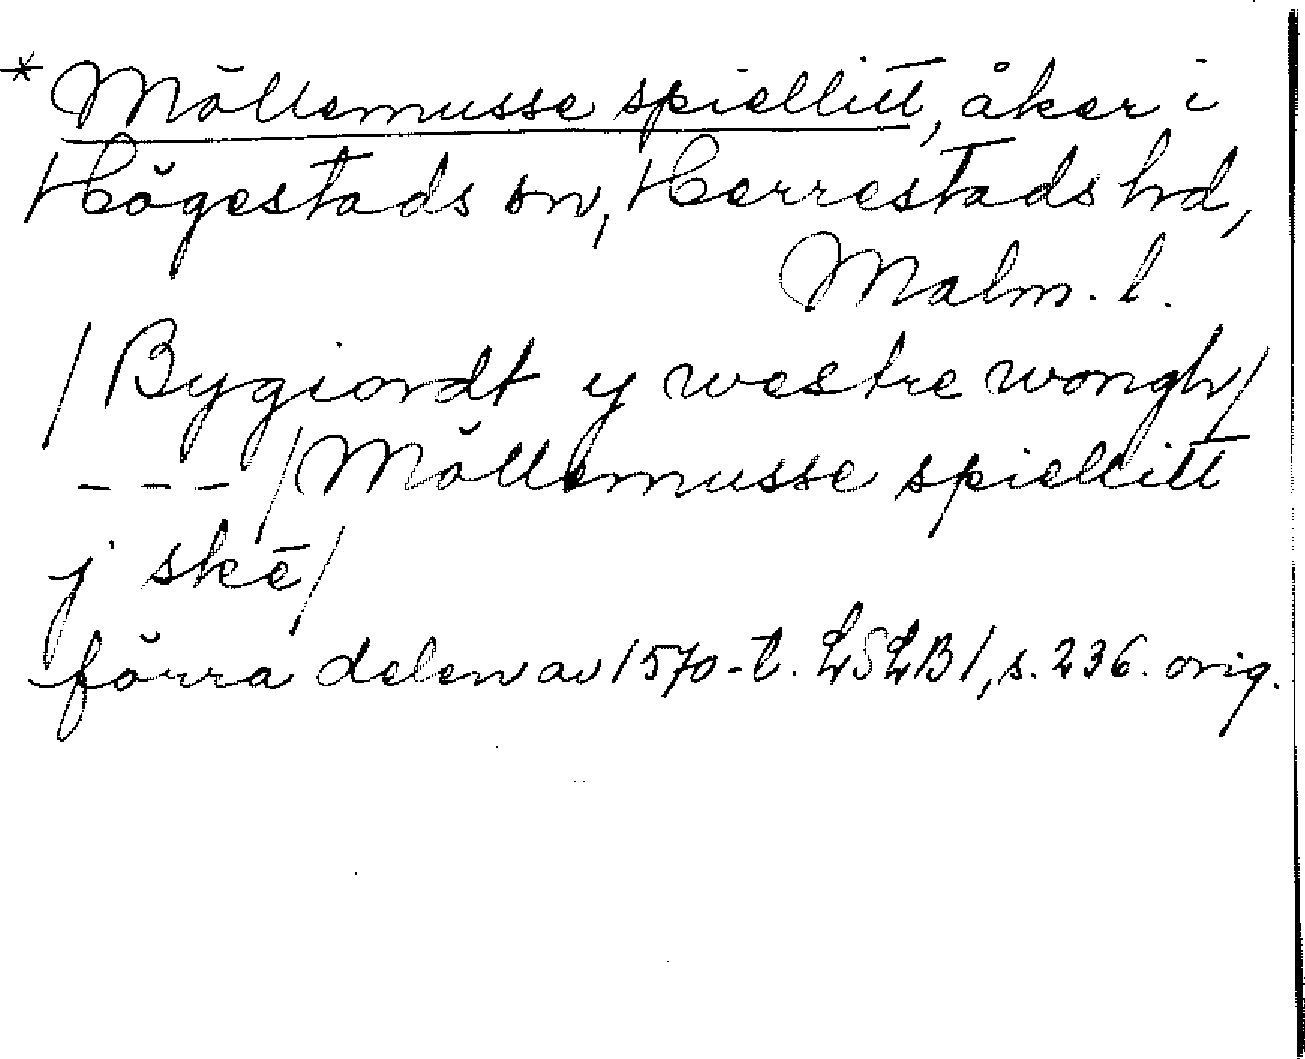 * Möllemusse spiellitt, åker i
Högestads sn, Herrestads hd,
Malm. l.
/Bygiordt y westre wongh/
--- /Möllemusse spiellitt
j skē/
förra delen av 1570-t. LSLB 1, s. 236. orig.